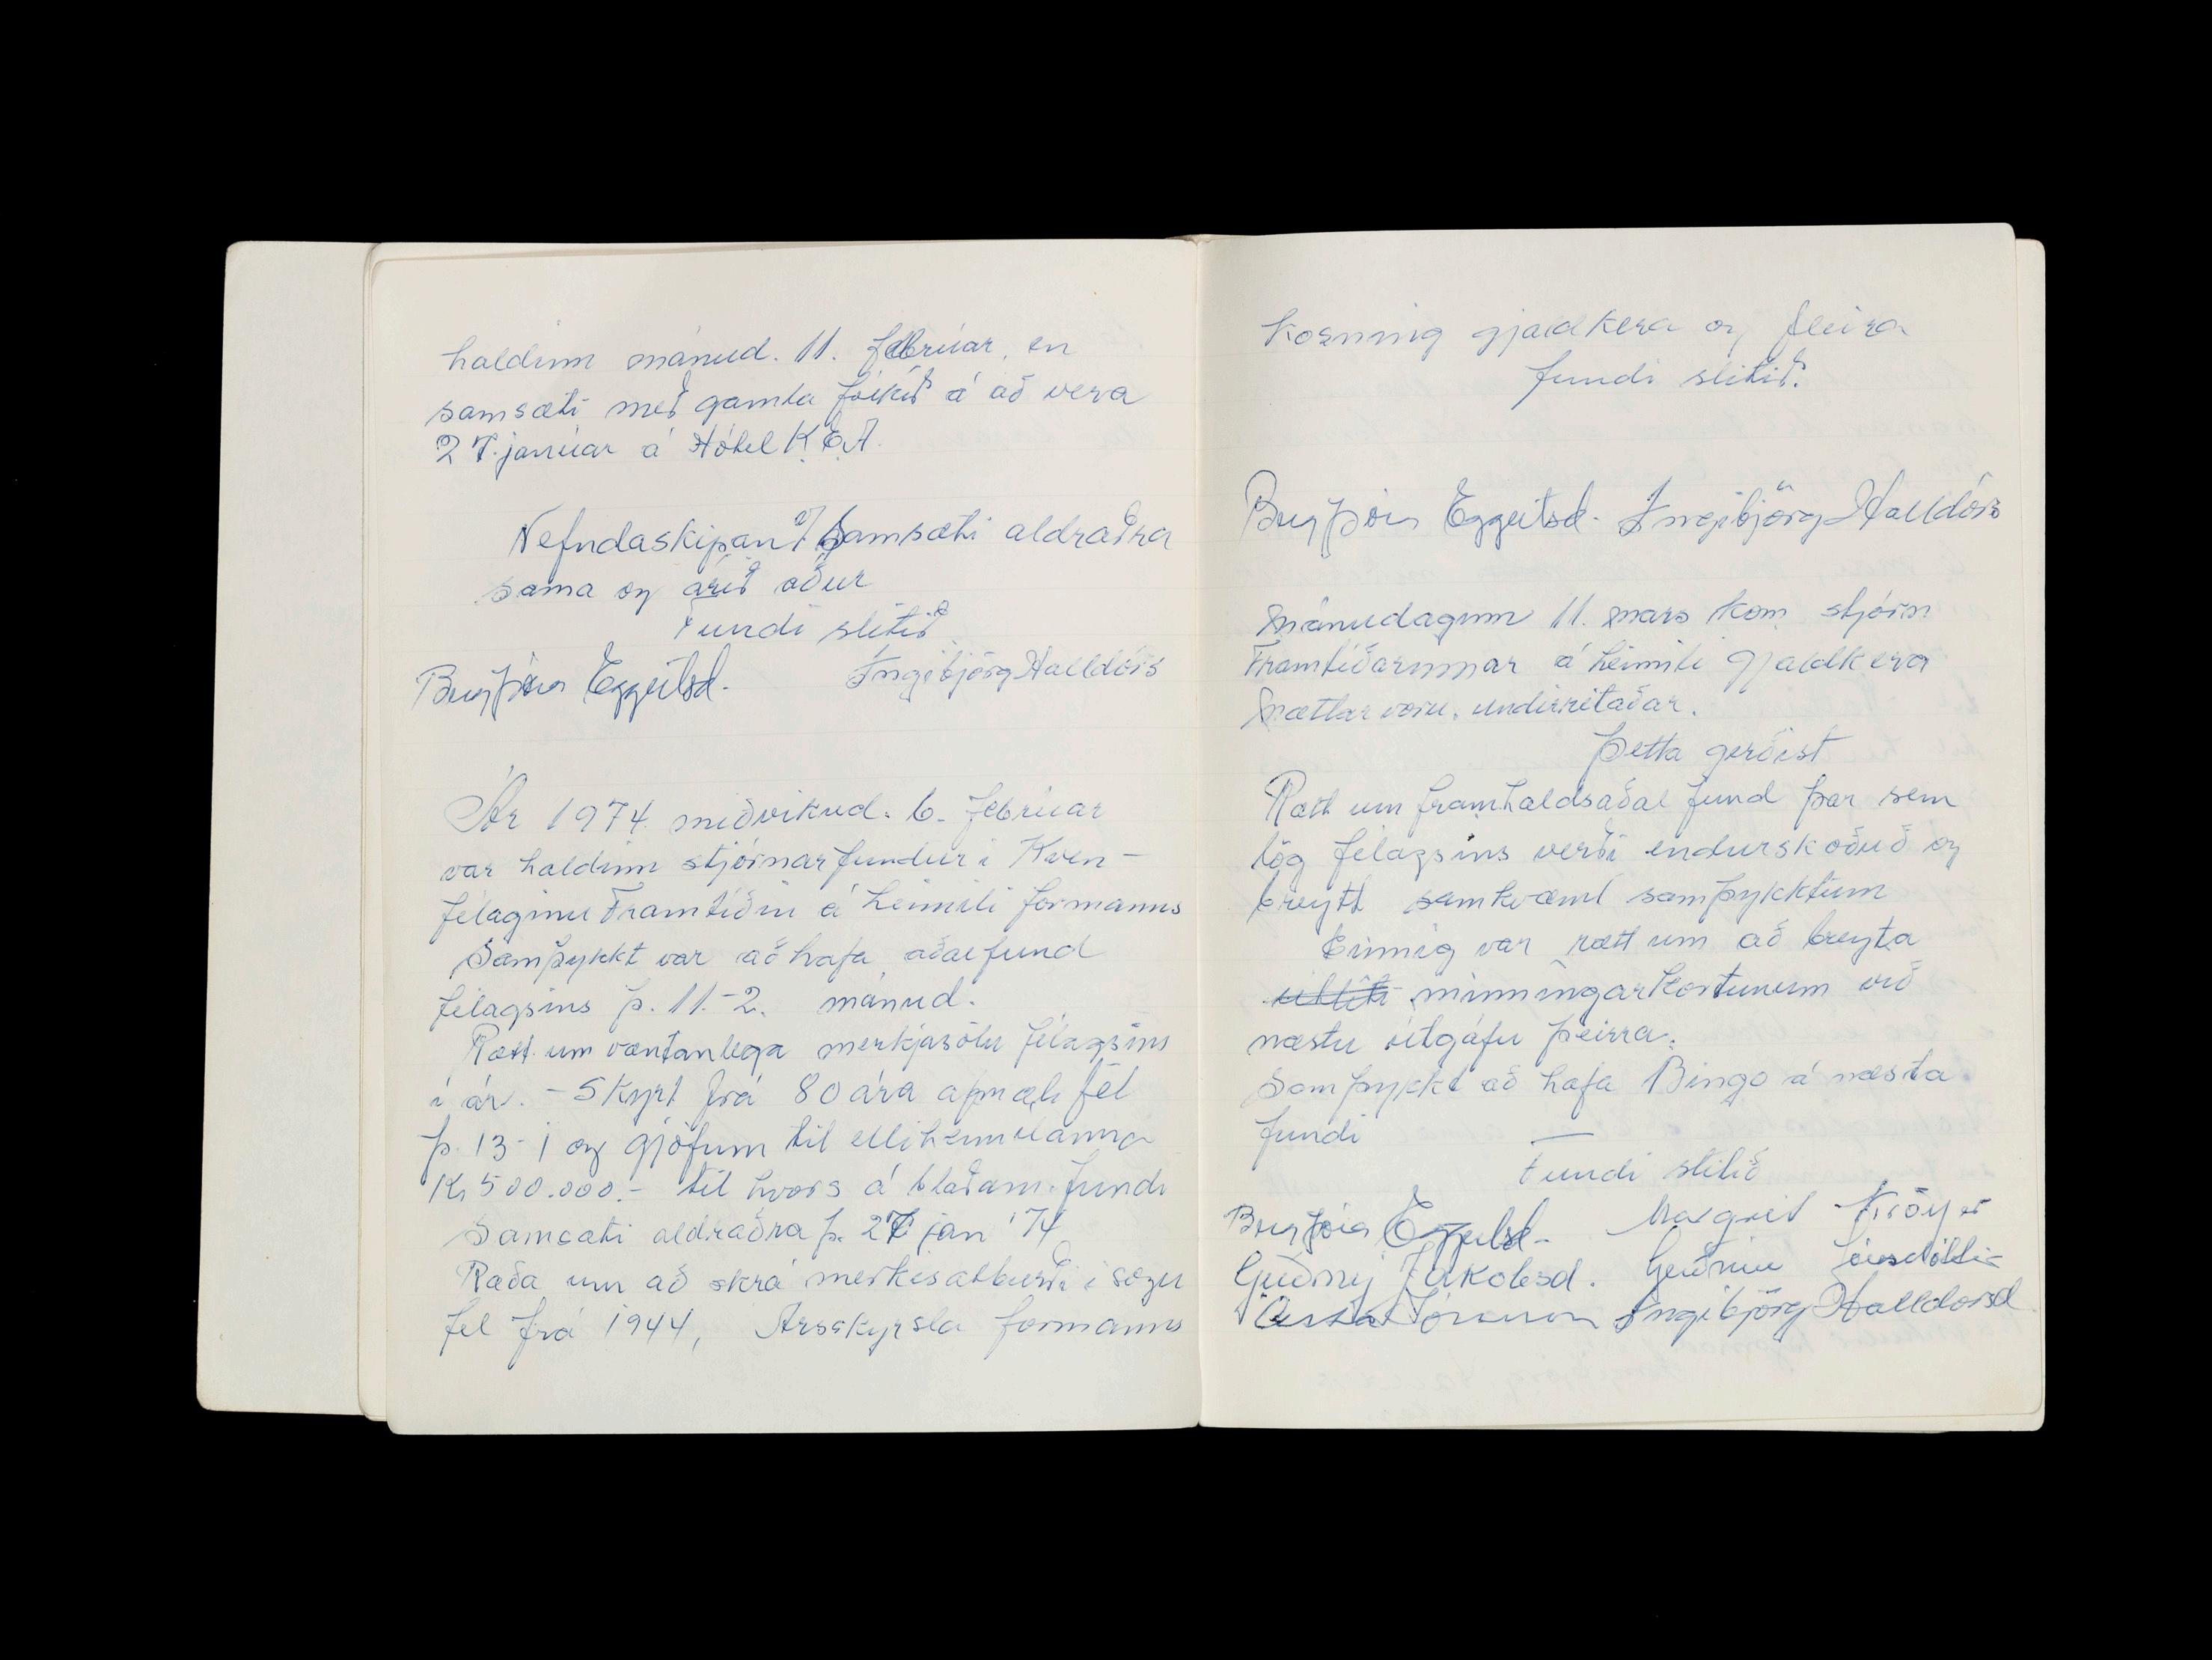 haldinn mánud. 11. febrúar, en
samsæti með gamla fólkið á að vera
27. janúar á Hótel K.E.A.
Nefndaskipan v/ Samsæti aldraðra
sama og árið aður
Fundi slitið
Bergþóra Eggertsd. Ingibjörg Halldórs
Ár 1974 miðvikud. 6. febrúar
var haldinn stjórnarfundur i Kven-
félaginu Framtíðin á heimili formanns
Samþykkt var að hafa aðalfund
félagsins þ. 11.-2. mánud.
Rætt um væntanlega merkjasölu félagsins
i ár. - Skýrt frá 80 ára afmæli fél
þ. 13-1 og gjöfum til elliheimilanna
Kr 500.000.- til hvors á blaðam. fundi
Samsæti aldraðra þ. 27 jan '74
Raða um að skrá merkisatburði i sögu
fel frá 1944, Arsskyrsla formanns
Kosning gjaldkera og fleira
fundi slitið.
Bergþóra Eggertsd. Ingibjörg Halldórs
Mánudaginn 11. mars kom stjórn
Framtíðarinnar á heimili gjaldkera
Mættar voru, undirritaðar.
Þetta gerðist
Rætt um framhaldsaðal fund þar sem
lög félagsins verði endurskoðuð og
breytt samkvæmt samþykktum
Einnig var rætt um að breyta
útliti minningarkortunum við
næstu útgáfu þeirra.
Samþykkt að hafa Bingo á næsta
fundi
Fundi slitið
Bergþóra Eggertsd. Margrét Kröyer
Guðný Jakobsd. Guðrún Jónsdóttir
Jónsson Ingibjörg Halldorsd